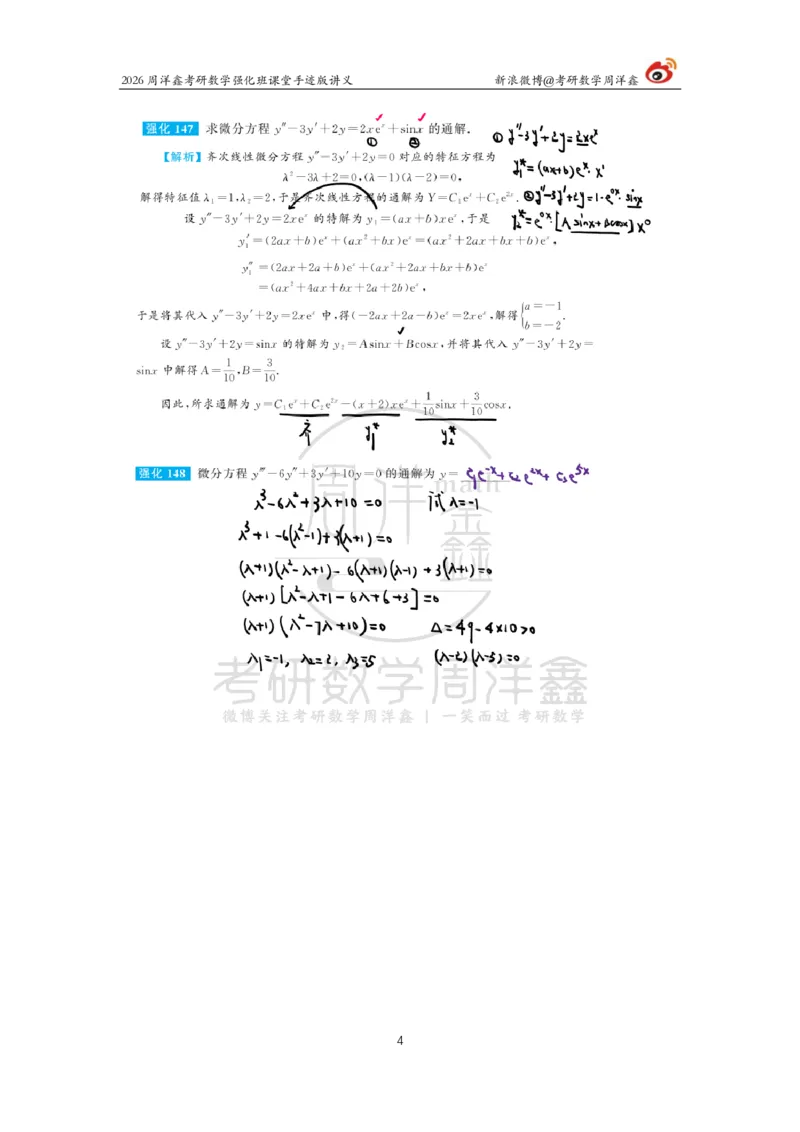 2026 周洋鑫考研数学强化班课堂手迹版讲义 新浪微博@考研数学周洋鑫
强化 147 求微分方程 y″-3y′+2y=2xeˣ+sinx 的通解.
① ②
① y″-3y′+2y=2xeˣ
【解析】齐次线性微分方程 y″-3y′+2y=0 对应的特征方程为
y₁*=(ax+b)eˣ·x¹
λ²-3λ+2=0,(λ-1)(λ-2)=0,
解得特征值 λ₁=1,λ₂=2,于是齐次线性方程的通解为 Y=C₁eˣ+C₂e²ˣ.
② y″-3y′+2y=1·e⁰ˣ·sinx
设 y″-3y′+2y=2xeˣ 的特解为 y₁=(ax+b)xeˣ,于是
y₂*=e⁰ˣ·[Asinx+Bcosx]x⁰
y₁′=(2ax+b)eˣ+(ax²+bx)eˣ=(ax²+2ax+bx+b)eˣ,
y₁″=(2ax+2a+b)eˣ+(ax²+2ax+bx+b)eˣ
=(ax²+4ax+bx+2a+2b)eˣ,
于是将其代入 y″-3y′+2y=2xeˣ 中,得(-2ax+2a-b)eˣ=2xeˣ,解得{a=-1 b=-2.
设 y″-3y′+2y=sinx 的特解为 y₂=Asinx+Bcosx,并将其代入 y″-3y′+2y=
sinx 中解得 A=1/10,B=3/10.
因此,所求通解为 y=C₁eˣ+C₂e²ˣ-(x+2)xeˣ+1/10 sinx+3/10 cosx.
齐 y₁* y₂*
强化 148 微分方程 y‴-6y″+3y′+10y=0 的通解为 y= C₁e⁻ˣ+C₂e²ˣ+C₃e⁵ˣ
λ³-6λ²+3λ+10=0 试λ=-1
λ³+1-6(λ²-1)+3(λ+1)=0
(λ+1)(λ²-λ+1)-6(λ+1)(λ-1)+3(λ+1)=0
(λ+1)[λ²-λ+1-6λ+6+3]=0
(λ+1)(λ²-7λ+10)=0 Δ=49-4×10>0
λ₁=-1, λ₂=2, λ₃=5 (λ-2)(λ-5)=0
周洋鑫
math
考研数学周洋鑫
微博关注考研数学周洋鑫 | 一笑而过 考研数学
4